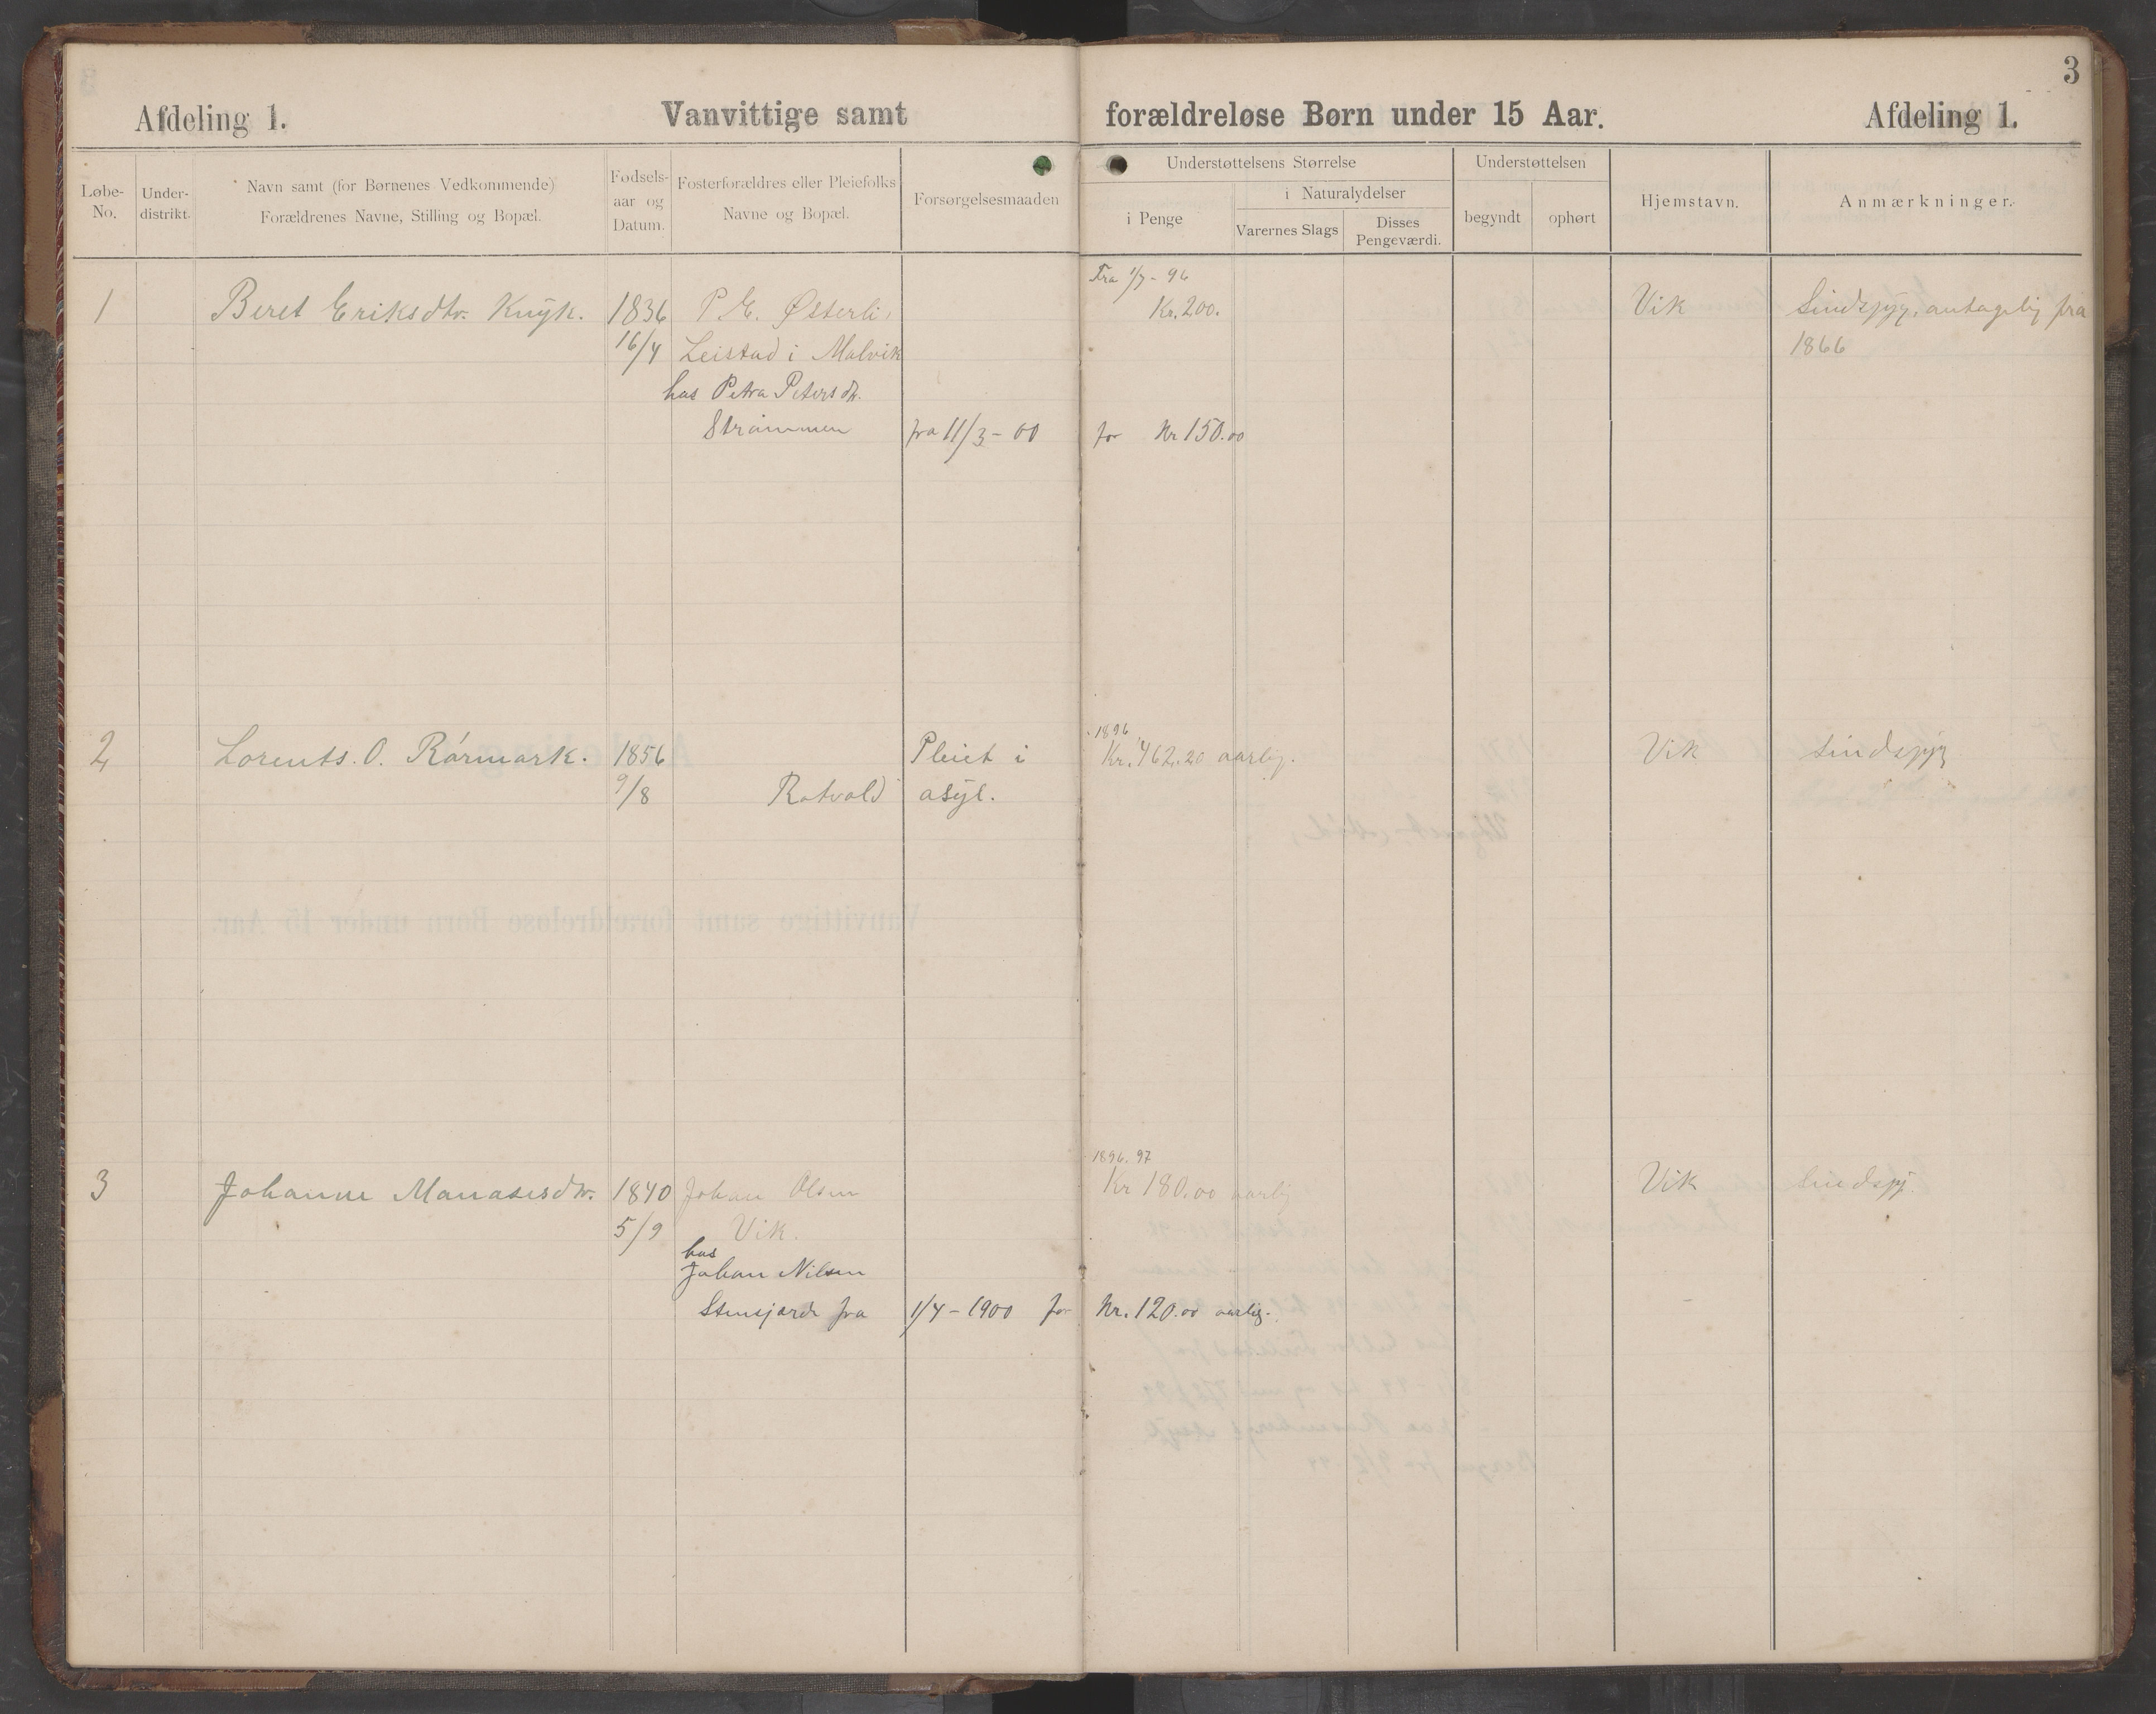 3
Afdeling 1. Vanvittige samt forældreløse Børn under 15 Aar. Afdeling 1.
Løbe-No.
Under-distrikt.
Navn samt (for Børnenes Vedkommende)
Forældrenes Navne, Stilling og Bopæl.
Fødsels-
aar og
Datum.
Fosterforældres eller Pleiefolks
Navne og Bopæl.
Forsørgelsesmaaden
Understøttelsens Størrelse
i Penge
i Naturalydelser
Varernes Slags
Disses
Pengeværdi.
Understøttelsen
begyndt
ophørt
Hjemstavn.
Anmærkninger.
Fra 1/7 - 96
1 Beret Eriksdtr. Knÿk. 1836 P. E. Østerli, Kr. 200. Vik Sindssyg, antagelig fra
16/4 Leistad i Malvik 1866
hos Petra Petersdtr.
Strømmen fra 11/3 - 00 for Kr 150.00
1896
2 Lorents. O. Rørmark. 1856 Pleiet i Kr. 462.20 aarlig. Vik Sindssyg
9/8 Rotvold asyl.
1896. 97
3 Johanne Manasesdtr. 1840 Johan Olsen Kr 180.00 aarlig Vik Sindssyg.
5/9 Vik.
hos
Johan Nilsen
fra 1/4 - 1900 for Kr. 120.00 aarlig.